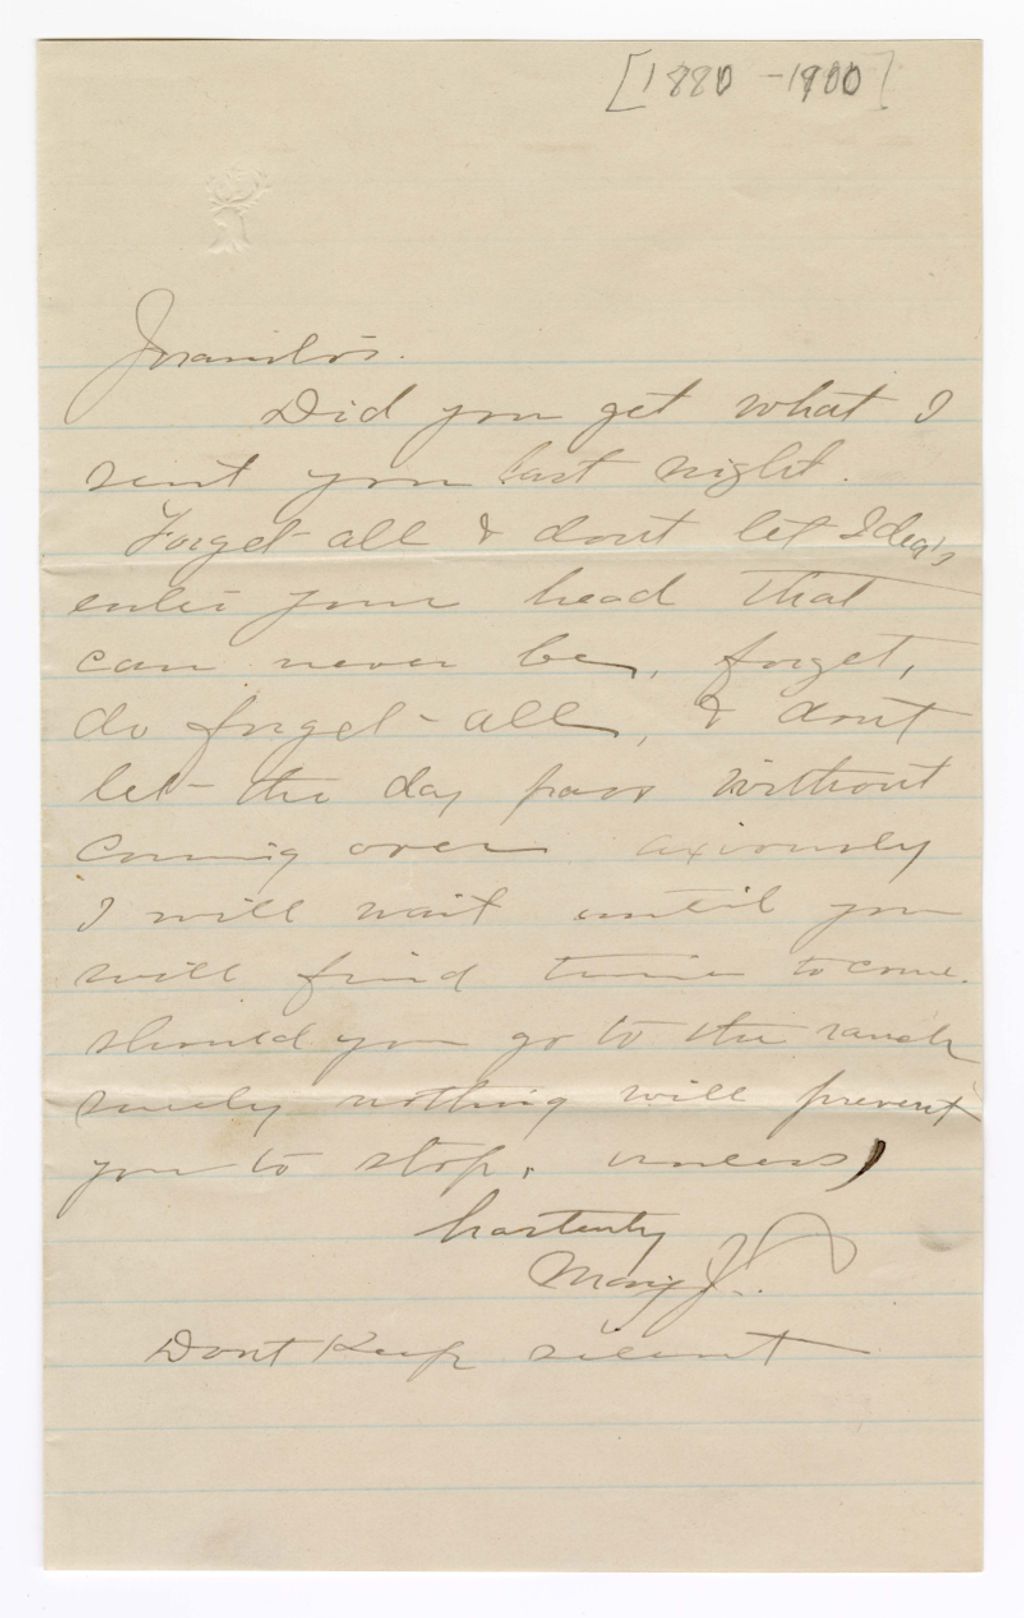 [1880-1900]
Juanito's.
Did you get what I
sent you last night.
Forget all & dont let Idea's
enter your head that
can never be, forget,
do forget all, & dont
let the day pass without
coming over axiously
I will wait until you
will find time to come.
should you go to the ranch
surely nothing will prevent
you to stop, unless,
hastenly
Mary J.
Dont Keep silent